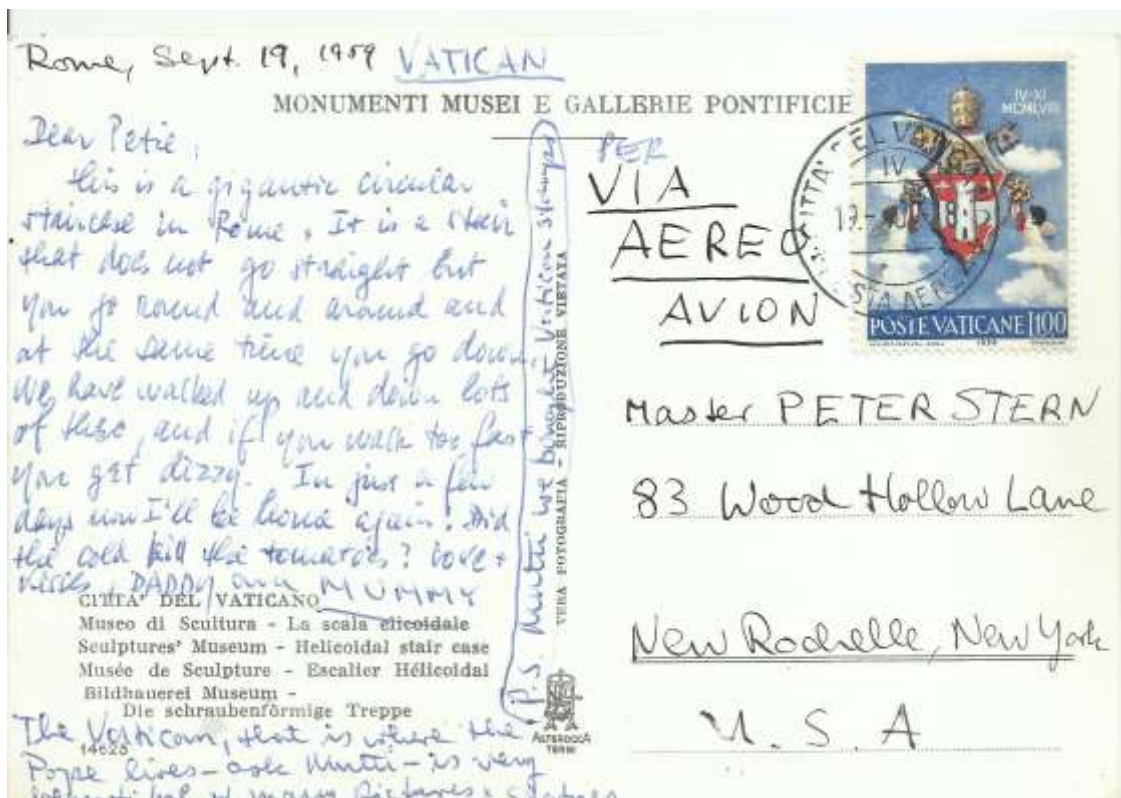 Rome, Sept. 19, 1959 VATICAN
MONUMENTI MUSEI E GALLERIE PONTIFICIE
Dear Petie,
this is a gigantic circular
staircase in Rome. It is a stair
that does not go straight but
you go round and around and
at the same time you go down.
We have walked up and down lots
of these, and if you walk too fast
you get dizzy. In just a few
days now I'll be home again. Did
the cold kill the tomatoes? Love +
kisses, DADDY and MUMMY
CITTA' DEL VATICANO
Museo di Scultura - La scala elicoidale
Sculptures' Museum - Helicoidal stair case
Musée de Sculpture - Escalier Hélicoidal
Bildhauerei Museum -
Die schraubenförmige Treppe
14625
The Vatican, that is where the
Pope lives - ask Mutti - is very
many pictures
P.S. Mutti we bought Vatican stamps
VERA FOTOGRAFIA - RIPRODUZIONE VIETATA
ALTEROCCA
TERNI
PER
VIA
AEREO
AVION
IV-XI
MCMLVIII
CITTA DEL
IV
19.
POSTA AEREA
POSTE VATICANE L100
Master PETER STERN
83 Wood Hollow Lane
New Rochelle, New York
U.S.A